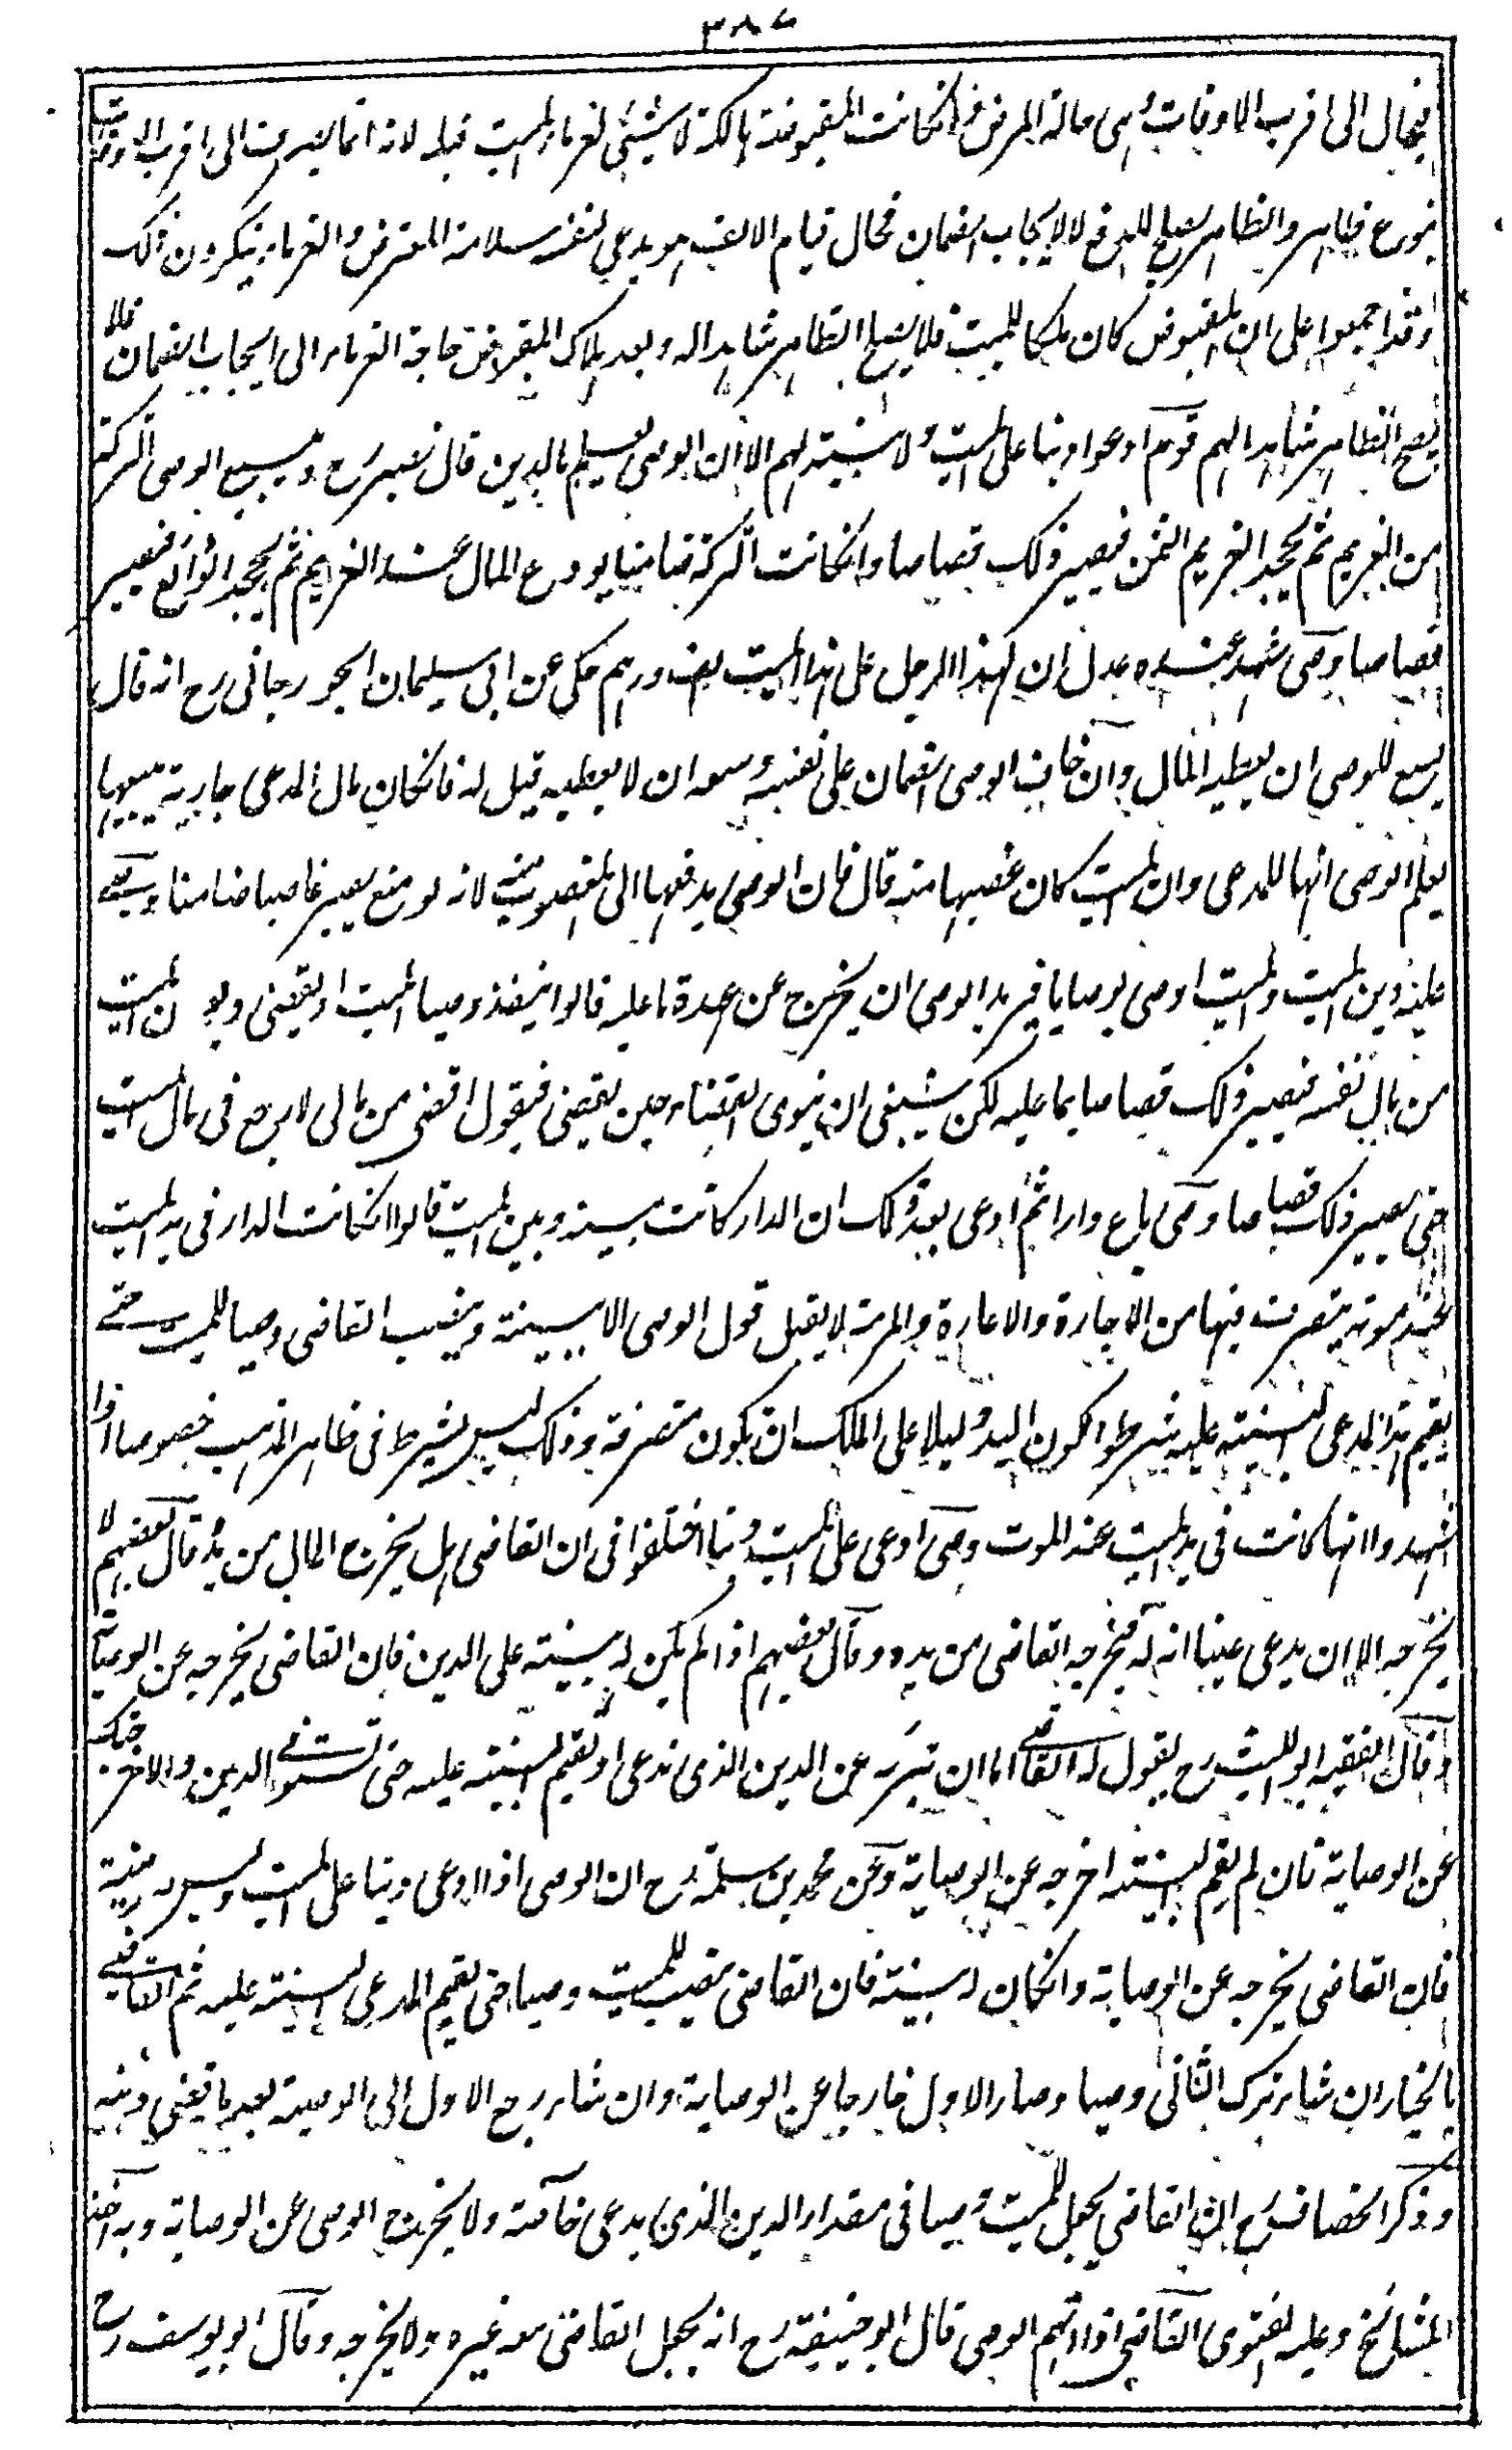 ٣٨٧
فيحال الى اقرب الاوقات وهى حالة المرض وانكانت المقبوضة هالكة لا شيئى لغرماء الميت قبله لانه انما يضرف الى اقرب الاوقات
بنوع ظاهر والظاهر يصلح للدفع لا لايجاب الضمان فحال قيام الالف هو يدعى لنفسه سلامة المقبوض والغرماء ينكرون ذلك
وقد اجمعوا على ان المقبوض كان ملكا للميت فلا يصلح الظاهر شاهدا له وبعد هلاك المقبوض حاجة الغرماء الى ايجاب الضمان فلا
يصلح الظاهر شاهدا لهم قوم ادعوا دينا على الميت ولا بينة لهم الا ان الوصى يعلم بالدين قال نصير رح يبيع الوصى التركة
من الغريم ثم يجحد الغريم الثمن فيصير ذلك قصاصا وانكانت التركة ضامنا يودع المال عند الغريم ثم يجحد المودع فيصير
قصاصا وصى شهد عنده عدل ان لهذا الرجل على هذا الميت الف درهم حكى عن ابى سليمان الجوزجانى رح انه قال
يسع للوصى ان يعطيه المال وان خاف الوصى الضمان على نفسه وسعه ان لا يعطيه قيل له فانكان مال المدعى جارية بعينها
يعلم الوصى انها للمدعى وان الميت كان غصبها منه قال فان الوصى يدفعها الى المغصوب منه لانه لو منع يصير غاصبا ضامنا وصى
عليه دين الميت والميت اوصى بوصايا فيريد الوصى ان يخرج عن عهدة ما عليه قالوا ينفذ وصايا الميت او يقضى ديون الميت
من مال نفسه فيصير ذلك قصاصا بما عليه لكن ينبغى ان ينوى القضاء حين يقضى فيقول اقضى من مالى لارجع فى مال الميت
حتى يصير ذلك قصاصا وصى باع دارا ثم ادعى بعد ذلك ان الدار كانت بينه وبين الميت قالوا انكانت الدار فى يد الميت
عند موته يتصرف فيها من الاجارة والاعارة والمرمة لا يقبل قول الوصى الا ببينة وينصب القاضى وصيا للميت حتى
يقيم هذا المدعى البينة عليه شرطوا لكون اليد دليلا على الملك ان يكون متصرفة وذلك ليس بشرط فى ظاهر المذهب خصوصا اذا
شهدوا انها كانت فى يد الميت عند الموت وصى ادعى على الميت دينا اختلفوا فى ان القاضى هل يخرج المال من يده قال بعضهم لا
يخرجه الا ان يدعى عينا انه له فيخرجه القاضى من يده وقال بعضهم اذا لم يكن له بينة على الدين فان القاضى يخرجه عن الوصاية
وقال الفقيه ابو الليث رح يقول له القاضى اما ان تبرئه عن الدين الذى تدعى او تقيم البينة عليه حتى تستوفى الدين والا اخرجتك
عن الوصاية فان لم يقم البينة اخرجه عن الوصاية وعن محمد بن سلمة رح ان الوصى اذا ادعى دينا على الميت وليس له بينة
فان القاضى يخرجه عن الوصاية وانكان له بينة فان القاضى ينصب للميت وصيا حتى يقيم المدعى البينة عليه ثم القاضى
بالخيار ان شاء ترك الثانى وصيا وصار الاول خارجا عن الوصاية وان شاء رجع الاول الى الوصية بعد ما قضى دينه
وذكر الخصاف رح ان القاضى يجعل للميت وصيا فى مقدار الدين الذى يدعى خاصة ولا يخرج الوصى عن الوصاية وبه اخذ
المشائخ وعليه الفتوى القاضى اذا اتهم الوصى قال ابو حنيفة رح انه يجعل القاضى معه غيره ولا يخرجه وقال ابو يوسف رح